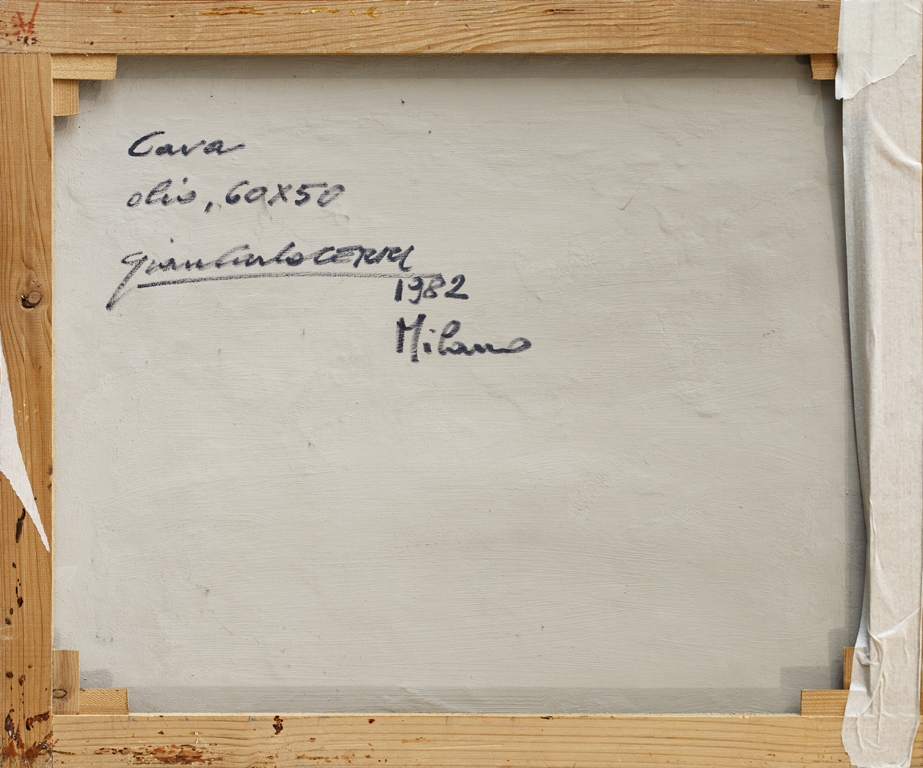 Cava
olio, 60x50
gianCarloCERRI
1982
Milano